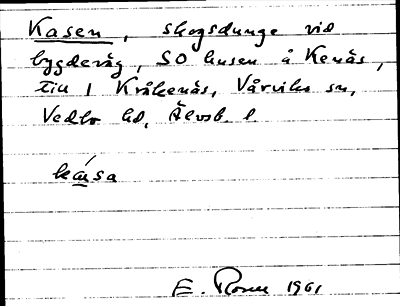 Kasen, skogsdunge vid
bygdeväg, SO husen å Kenäs,
till 1 Kråkenäs, Vårviks sn,
Vedbo hd, Älvsb. l
E. Rosen 1961